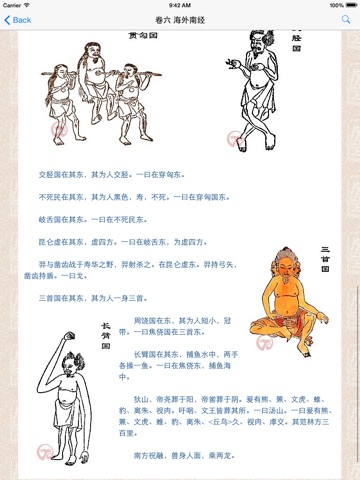 Carrier
9:42 AM
100%
Back
卷六 海外南经
贯匈国
胫国
交胫国在其东，其为人交胫。一曰在穿匈东。
不死民在其东，其为人黑色，寿，不死。一曰在穿匈国东。
岐舌国在其东。一曰在不死民东。
昆仑虚在其东，虚四方。一曰在岐舌东，为虚四方。
羿与凿齿战于寿华之野，羿射杀之。在昆仑虚东。羿持弓矢，
凿齿持盾。一曰戈。
三首国在其东，其为人一身三首。
三首国
长臂国
周饶国在东，其为人短小，冠
带。一曰焦侥国在三首东。
长臂国在其东，捕鱼水中，两手
各操一鱼。一曰在焦侥东，捕鱼海
中。
狄山，帝尧葬于阳，帝喾葬于阴。爰有熊、罴、文虎、蜼、
豹、离朱、视肉。吁咽、文王皆葬其所。一曰汤山。一曰爰有熊、
罴、文虎、蜼、豹、离朱、<丘鸟>久、视肉、虖交。其范林方三
百里。
南方祝融，兽身人面，乘两龙。